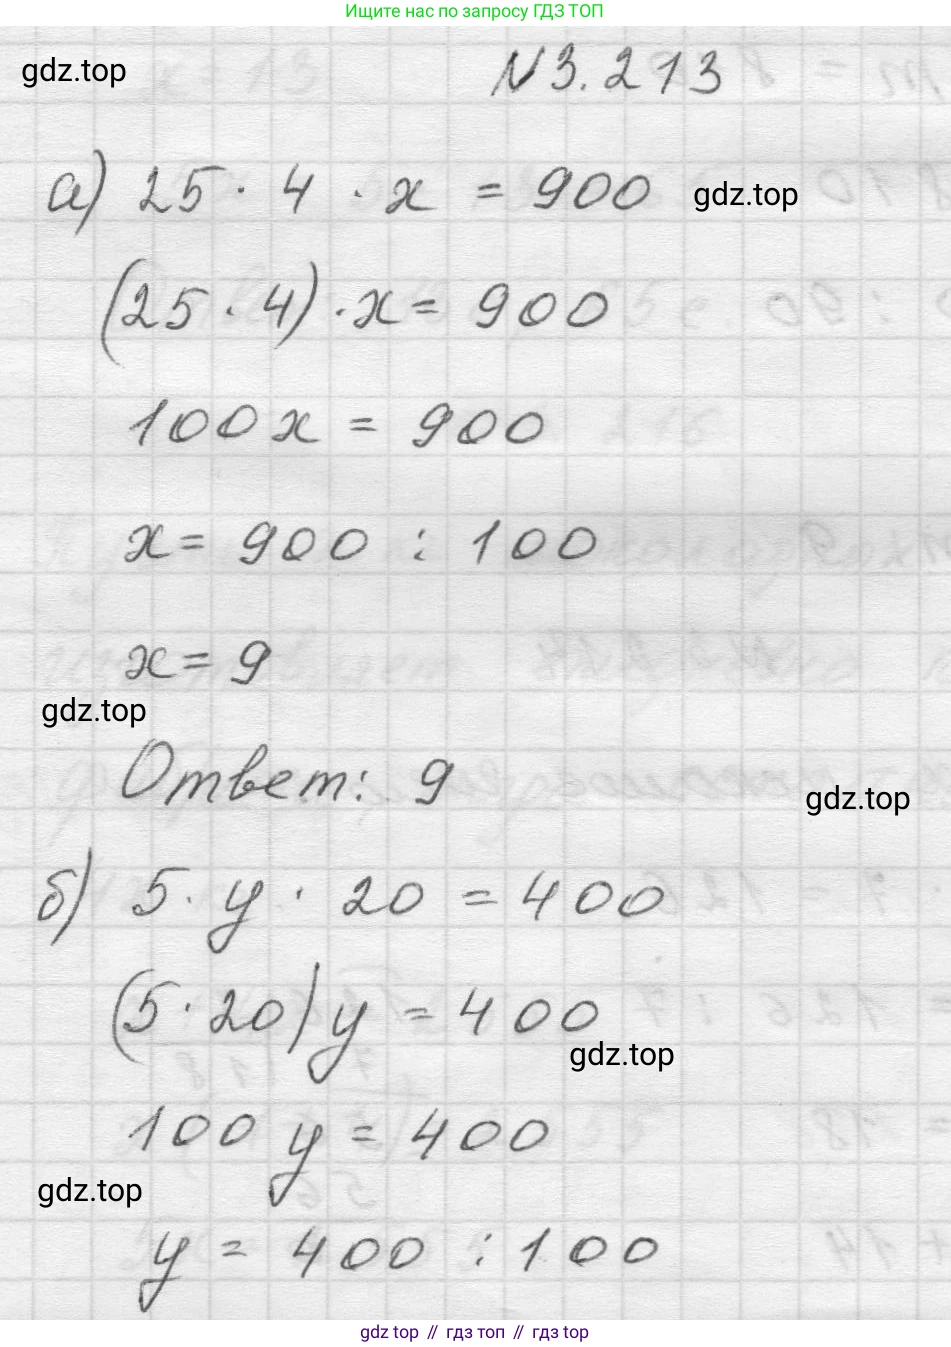 Ищите нас по запросу ГДЗ ТОП
gdz.top
N3.213
а) 25 · 4 · x = 900
gdz.top
(25 · 4) · x = 900
100x = 900
x = 900 : 100
x = 9
gdz.top
Ответ: 9
gdz.top
б) 5 · y · 20 = 400
(5 · 20) y = 400
gdz.top
100 y = 400
gdz.top
y = 400 : 100
gdz top // гдз топ // гдз top